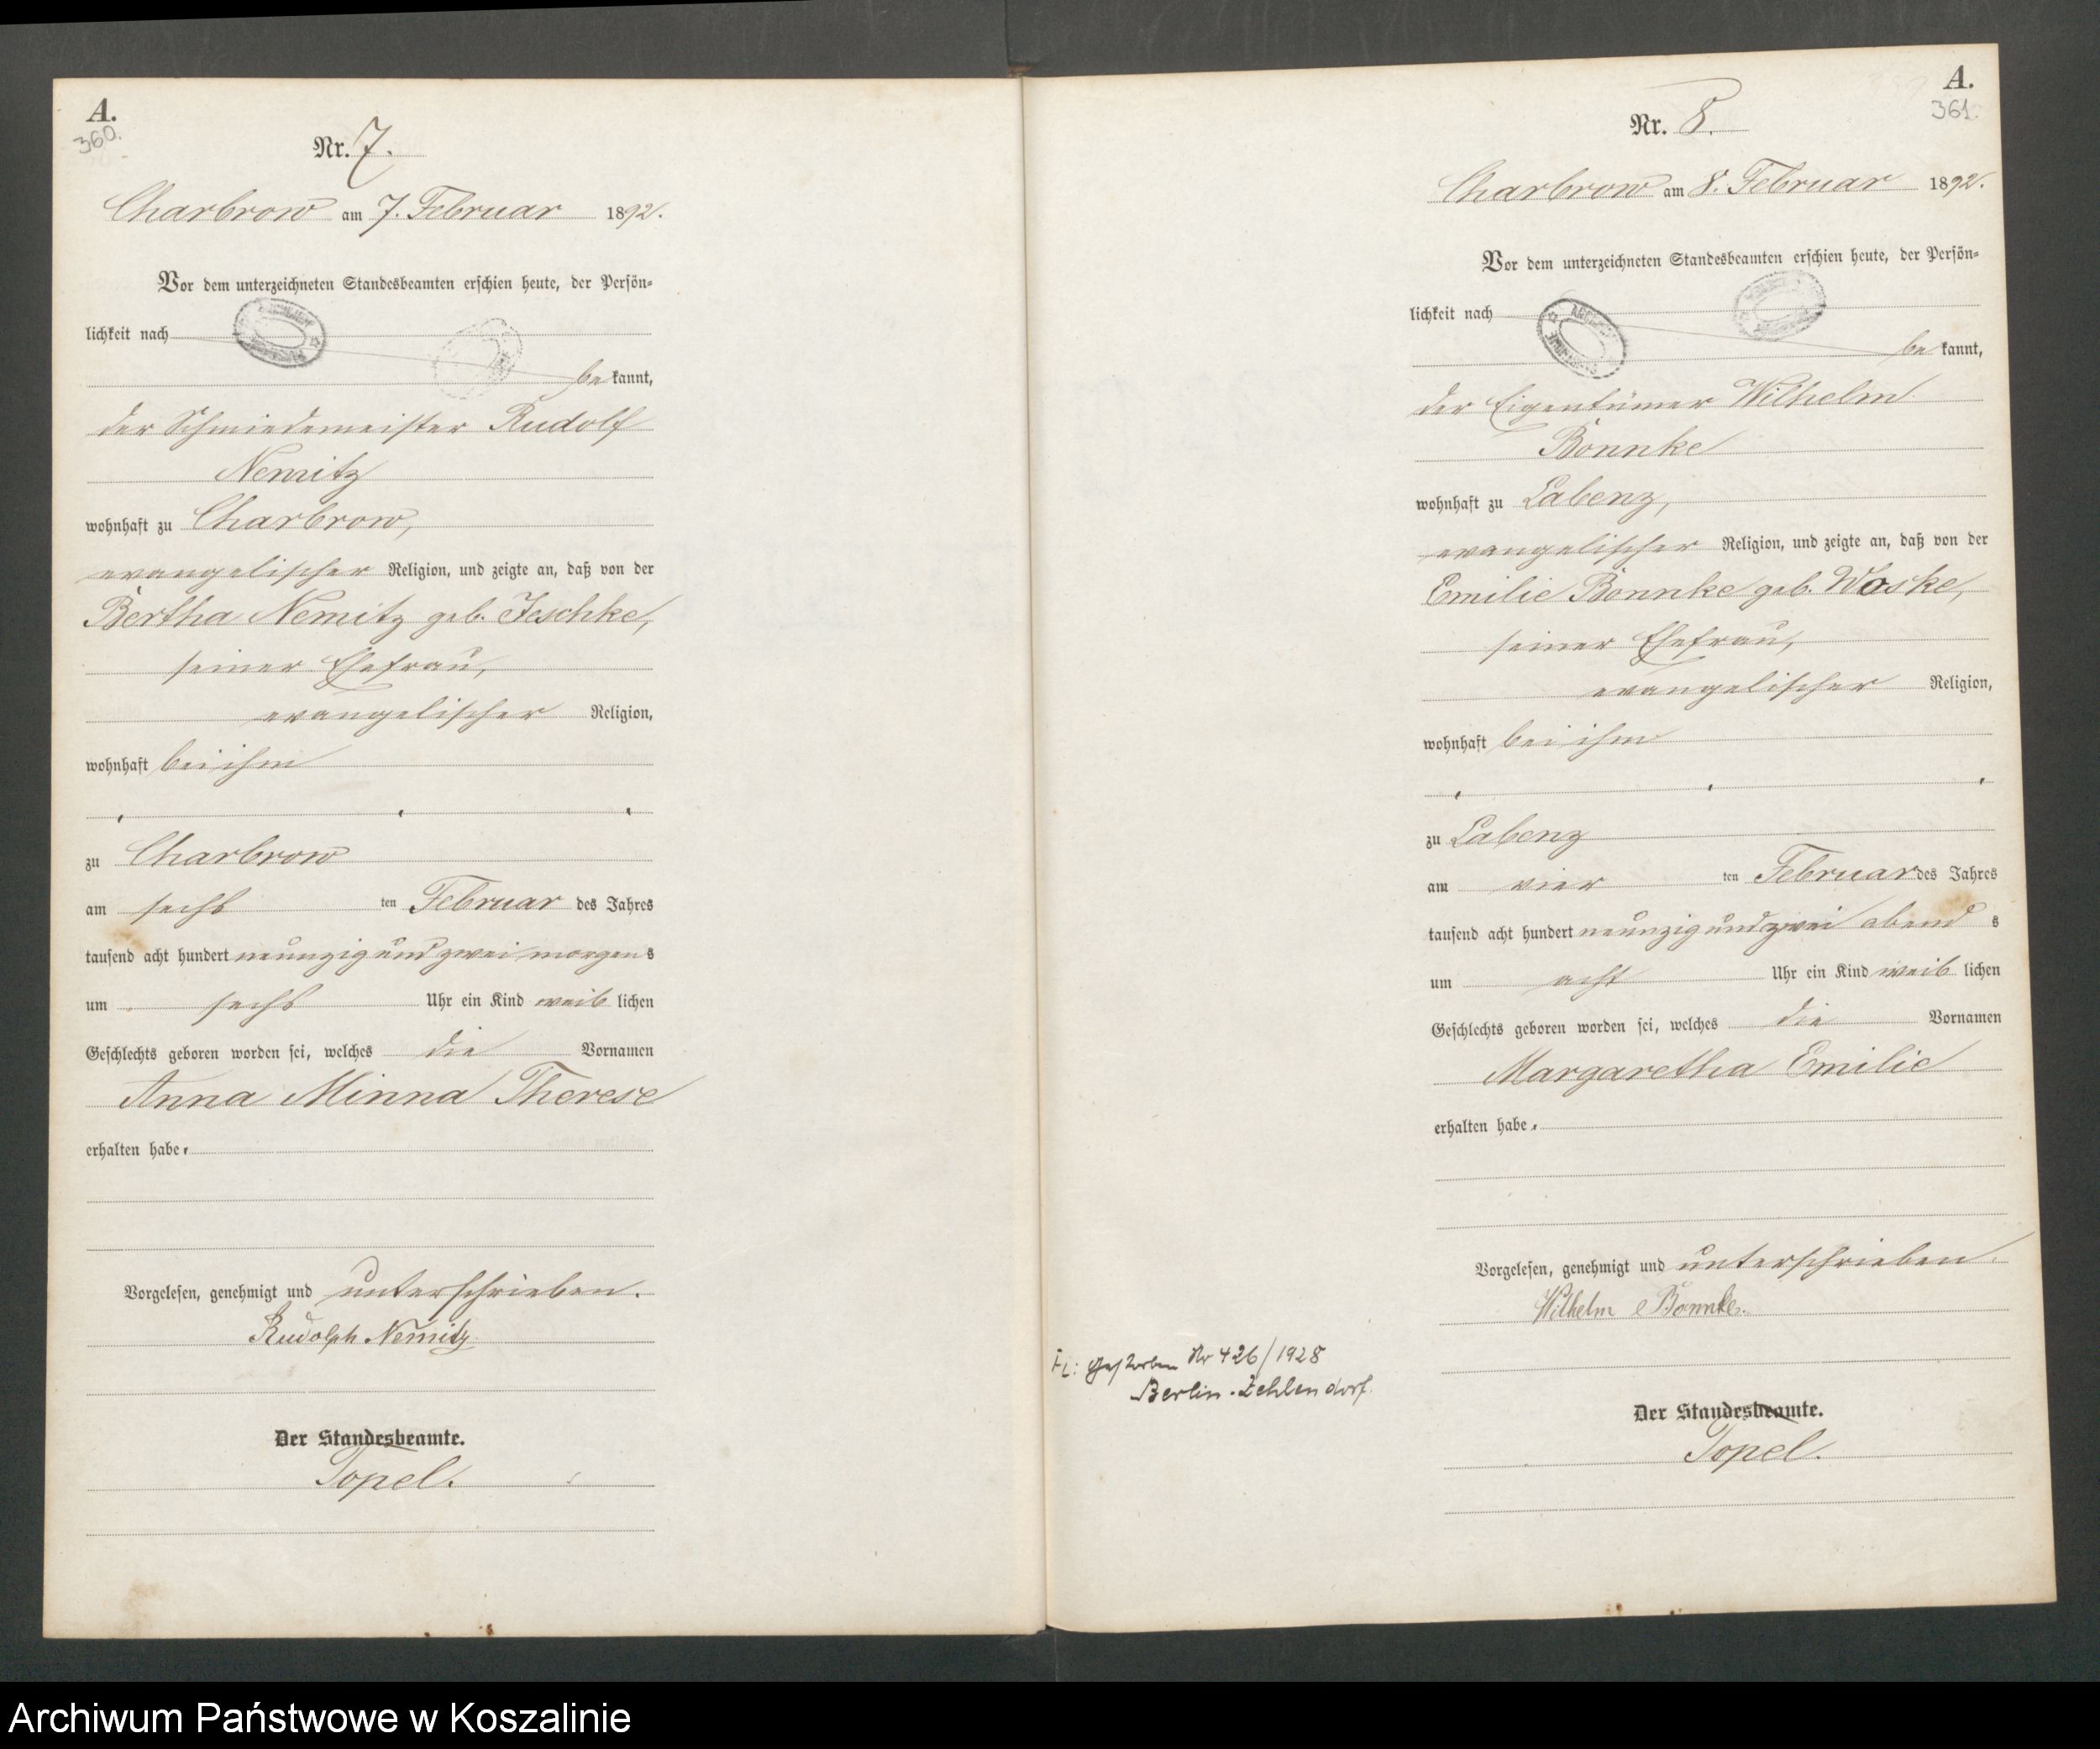 A.
360.
Nr. 7.
Charbrow am 7. Februar 1892.
Vor dem unterzeichneten Standesbeamten erschien heute, der Persön-
lichkeit nach
be kannt,
der Schmiedemeister Rudolf
Nemitz
wohnhaft zu Charbrow,
evangelischer Religion, und zeigte an, daß von der
Bertha Nemitz geb. Jeschke,
seiner Ehefrau,
evangelischer Religion,
wohnhaft bei ihm
zu Charbrow
am sechs ten Februar des Jahres
tausend acht hundert neunzig und zwei morgens
um sechs Uhr ein Kind weib lichen
Geschlechts geboren worden sei, welches die Vornamen
Anna Minna Therese
erhalten habe.
Vorgelesen, genehmigt und unterschrieben.
Rudolph Nemitz
Der Standesbeamte.
Topel.
A.
361.
Nr. 8.
Charbrow am 8. Februar 1892.
Vor dem unterzeichneten Standesbeamten erschien heute, der Persön-
lichkeit nach
be kannt,
der Eigentümer Wilhelm
Bonnke
wohnhaft zu Labenz,
evangelischer Religion, und zeigte an, daß von der
Emilie Bonnke geb. Woske,
seiner Ehefrau,
evangelischer Religion,
wohnhaft bei ihm
zu Labenz
am vier ten Februar des Jahres
tausend acht hundert neunzig und zwei abend s
um acht Uhr ein Kind weib lichen
Geschlechts geboren worden sei, welches die Vornamen
Margaretha Emilie
erhalten habe.
Vorgelesen, genehmigt und unterschrieben.
Wilhelm Bonnke.
gestorben Nr 426/1928
Berlin-Zehlendorf.
Der Standesbeamte.
Topel.
Archiwum Państwowe w Koszalinie